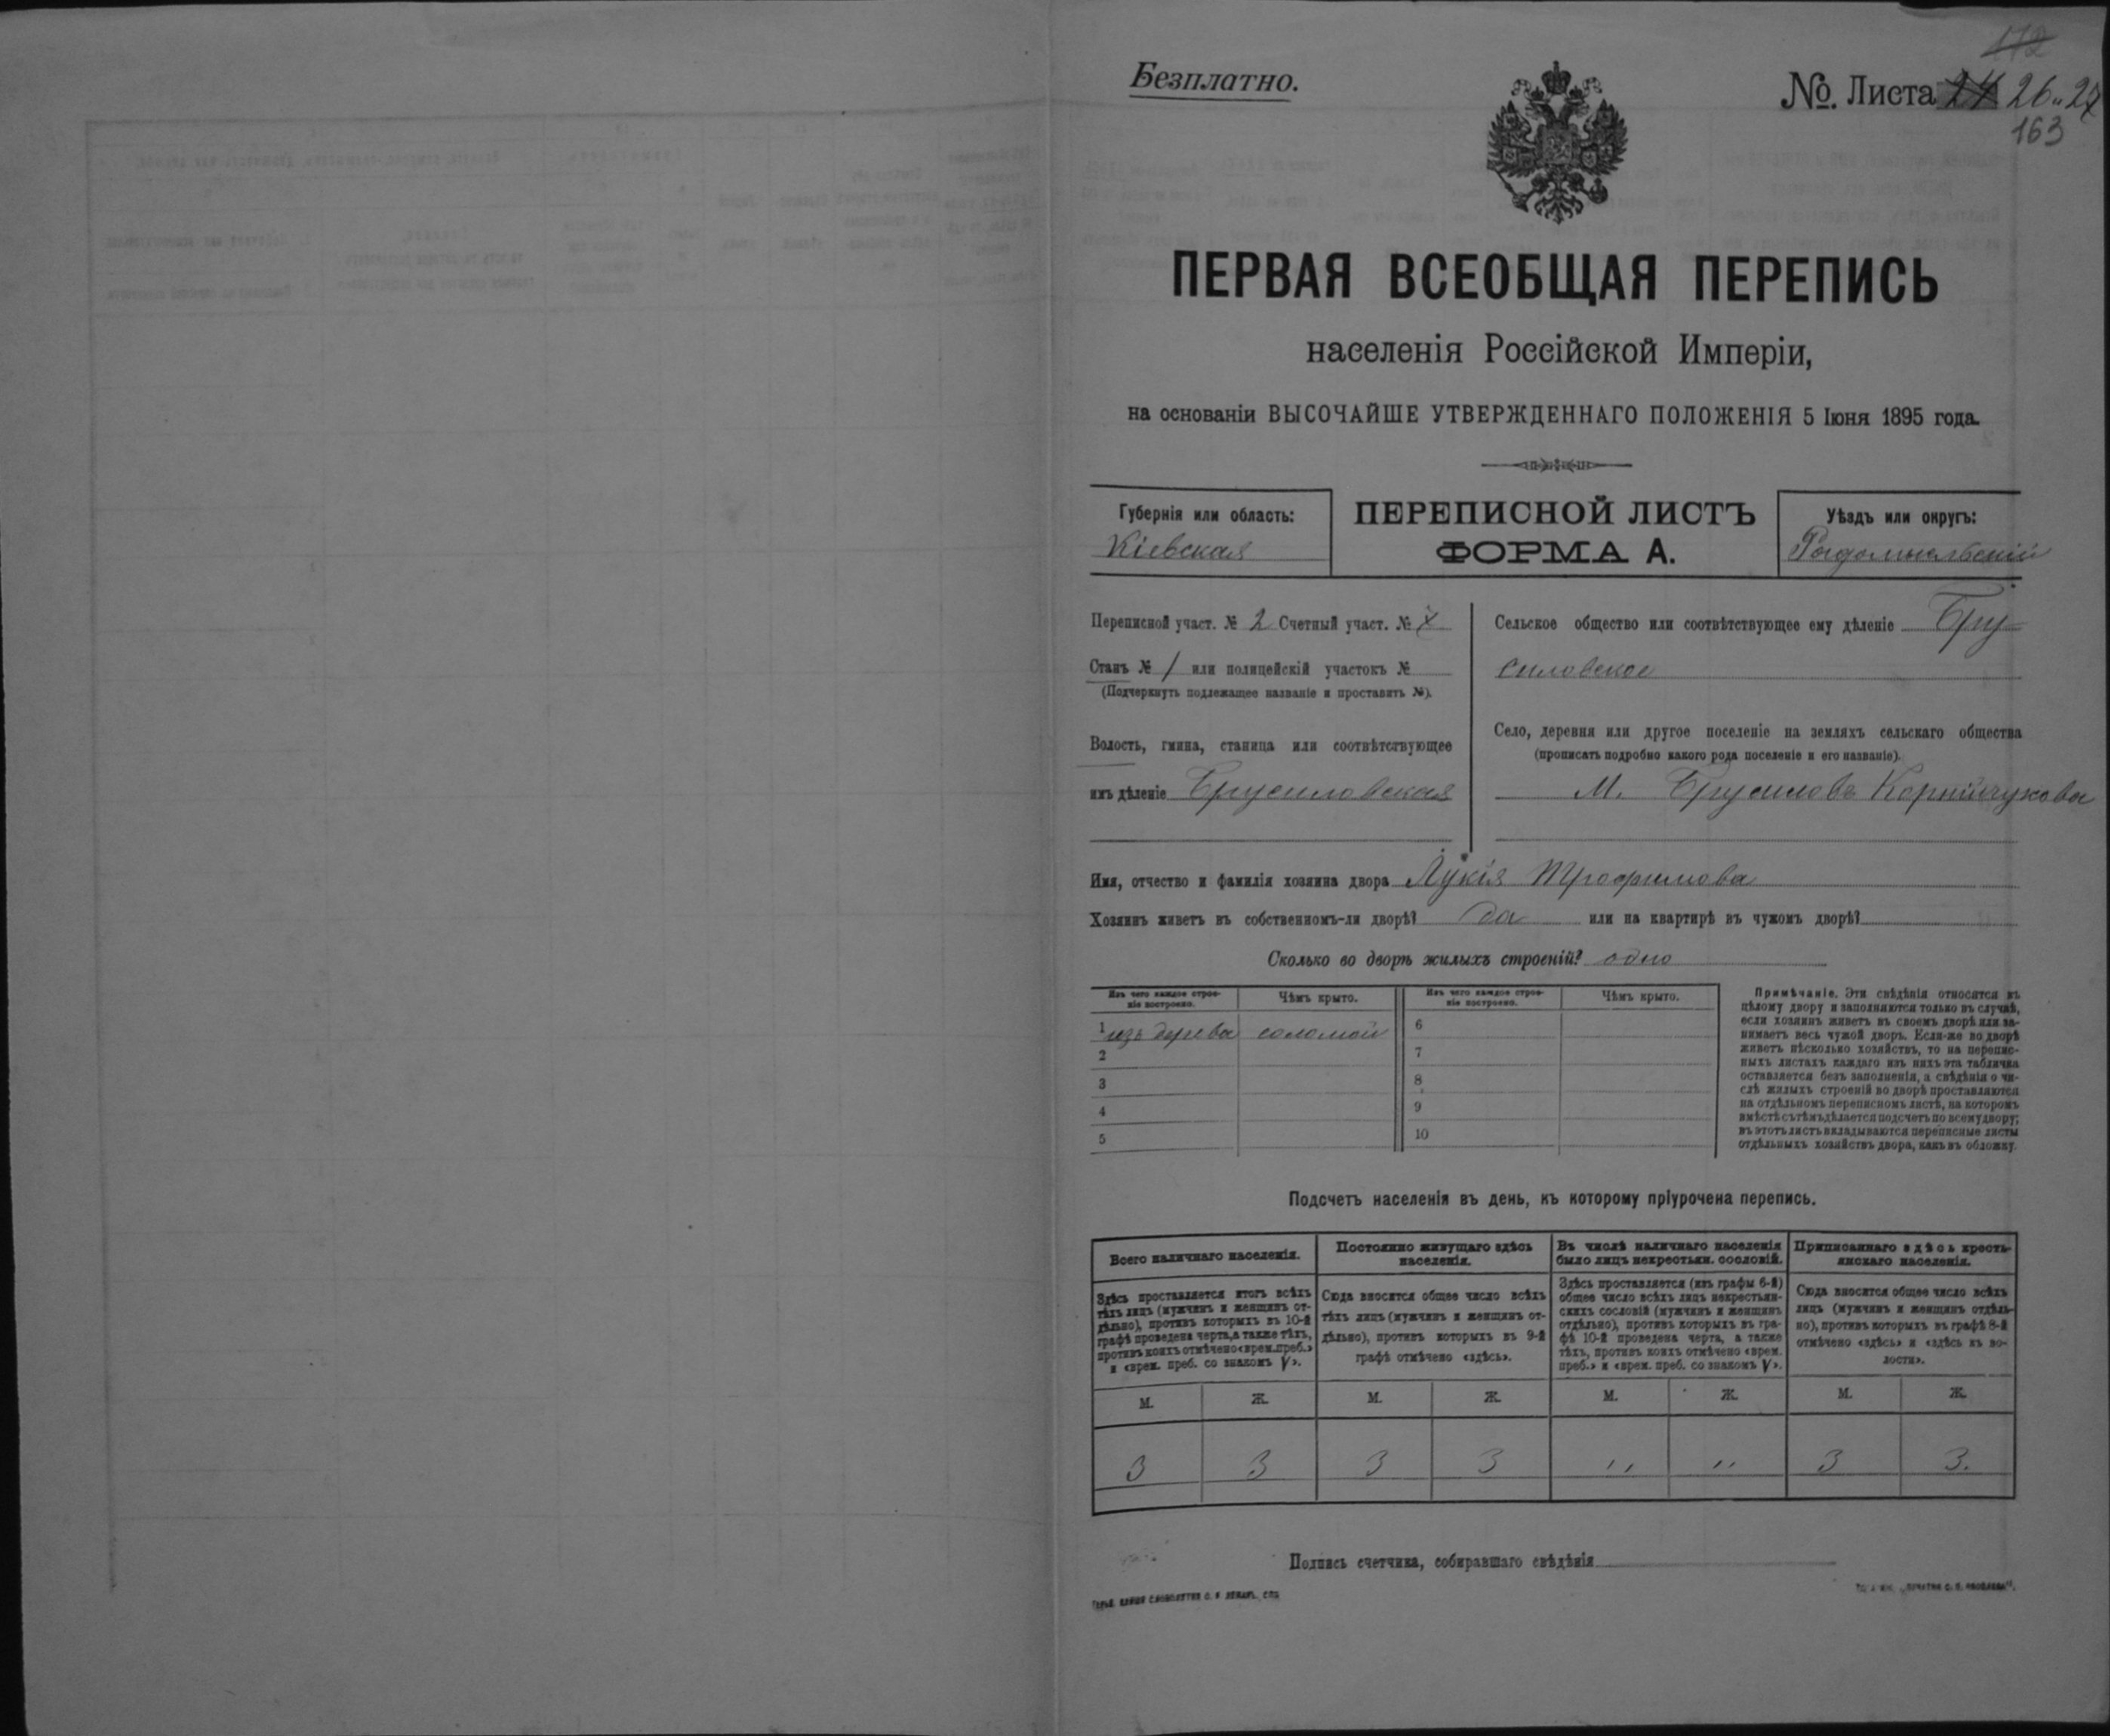 172
Безплатно.
№. Листа 24 26 и 27
163
ПЕРВАЯ ВСЕОБЩАЯ ПЕРЕПИСЬ
населенія Россійской Имперіи,
на основаніи ВЫСОЧАЙШЕ УТВЕРЖДЕННАГО ПОЛОЖЕНІЯ 5 Іюня 1895 года.
Губернія или область:
Кіевская
ПЕРЕПИСНОЙ ЛИСТЪ
ФОРМА А.
Уѣздъ или округъ:
Радомысльскій
Переписной участ. № 2 Счетный участ. №
Станъ № 1 или полицейскій участокъ №
(Подчеркнуть подлежащее названіе и проставить №).
Волость, гмина, станица или соотвѣтствующее
имъ дѣленіе Брусиловская
Сельское общество или соотвѣтствующее ему дѣленіе Бру-
силовское
Село, деревня или другое поселеніе на земляхъ сельскаго общества
(прописать подробно какого рода поселеніе и его названіе).
М. Брусиловъ Корнійчукова
Имя, отчество и фамилія хозяина двора Лукія Трофимова
Хозяинъ живетъ въ собственномъ-ли дворѣ? да или на квартирѣ въ чужомъ дворѣ?
Сколько во дворѣ жилыхъ строеній? одно
Изъ чего каждое строе-
ніе построено.
Чѣмъ крыто.
Изъ чего каждое строе-
ніе построено.
Чѣмъ крыто.
1 изъ дерева соломой 6
2 7
3 8
4 9
5 10
Примѣчаніе. Эти свѣдѣнія относятся къ
цѣлому двору и заполняются только въ случаѣ,
если хозяинъ живетъ въ своемъ дворѣ или за-
нимаетъ весь чужой дворъ. Если-же во дворѣ
живетъ нѣсколько хозяйствъ, то на перепис-
ныхъ листахъ каждаго изъ нихъ эта табличка
оставляется безъ заполненія, а свѣдѣнія о чи-
слѣ жилыхъ строеній во дворѣ проставляются
на отдѣльномъ переписномъ листѣ, на которомъ
вмѣстѣ съ тѣмъ дѣлается подсчетъ по всему двору;
въ этотъ листъ вкладываются переписные листы
отдѣльныхъ хозяйствъ двора, какъ въ обложку.
Подсчетъ населенія въ день, къ которому пріурочена перепись.
Всего наличнаго населенія.
Здѣсь проставляется итогъ всѣхъ
тѣхъ лицъ (мужчинъ и женщинъ от-
дѣльно), противъ которыхъ въ 10-й
графѣ проведена черта, а также тѣхъ,
противъ коихъ отмѣчено «врем. преб.»
и «врем. преб. со знакомъ V».
Постоянно живущаго здѣсь
населенія.
Сюда вносится общее число всѣхъ
тѣхъ лицъ (мужчинъ и женщинъ от-
дѣльно), противъ которыхъ въ 9-й
графѣ отмѣчено «здѣсь».
Въ числѣ наличнаго населенія
было лицъ некрестьян. сословій.
Здѣсь проставляется (изъ графы 6-й)
общее число всѣхъ лицъ некрестьян-
скихъ сословій (мужчинъ и женщинъ
отдѣльно), противъ которыхъ въ гра-
фѣ 10-й проведена черта, а также
тѣхъ, противъ коихъ отмѣчено «врем.
преб.» и «врем. преб. со знакомъ V».
Приписаннаго здѣсь кресть-
янскаго населенія.
Сюда вносится общее число всѣхъ
лицъ (мужчинъ и женщинъ отдѣль-
но), противъ которыхъ въ графѣ 8-й
отмѣчено «здѣсь» и «здѣсь къ во-
лости».
М. Ж. М. Ж. М. Ж. М. Ж.
3 3 3 3 " " 3 3.
Подпись счетчика, собиравшаго свѣдѣнія